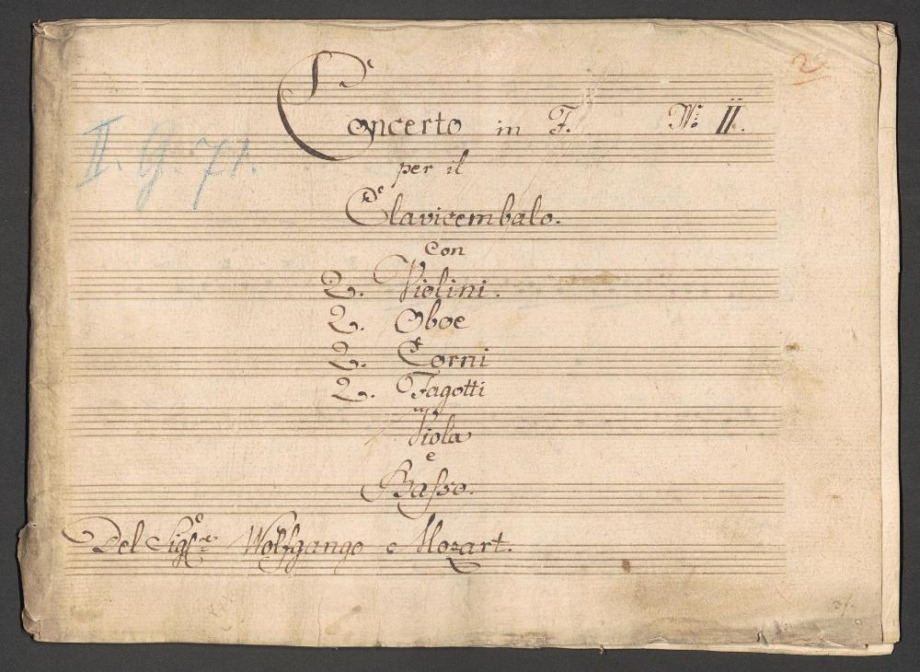 2
Concerto in F. Nº: II.
II. G. 71.
per il
Clavicembalo.
Con
2. Violini.
2. Oboe
2. Corni
2. Fagotti
Viola
e
Baſso.
Del Sigre Wolfgango e Mozart.